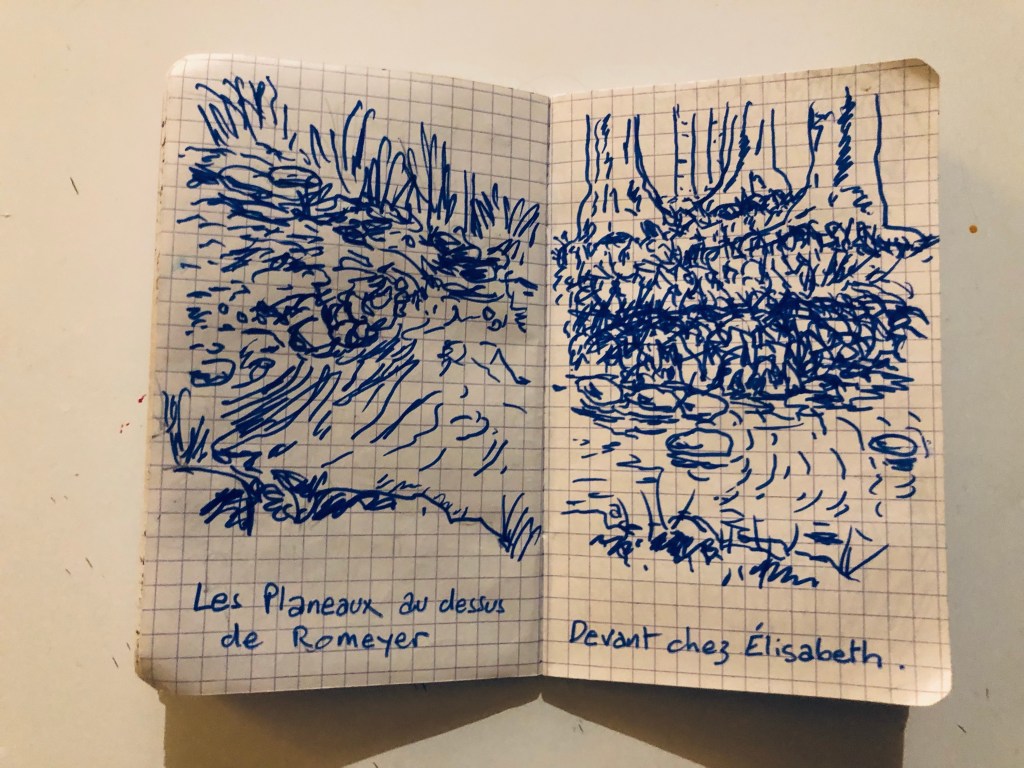 Les Planeaux au dessus
de Romeyer
Devant chez Élisabeth.